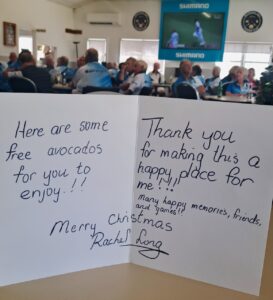 SHIMANO
SHIMANO
Here are some
free avocados
for you to
enjoy.!!
Thank you
for making this a
happy place for
me!!!!
many happy memories, friends,
and games!!
Merry Christmas
Rachel Long